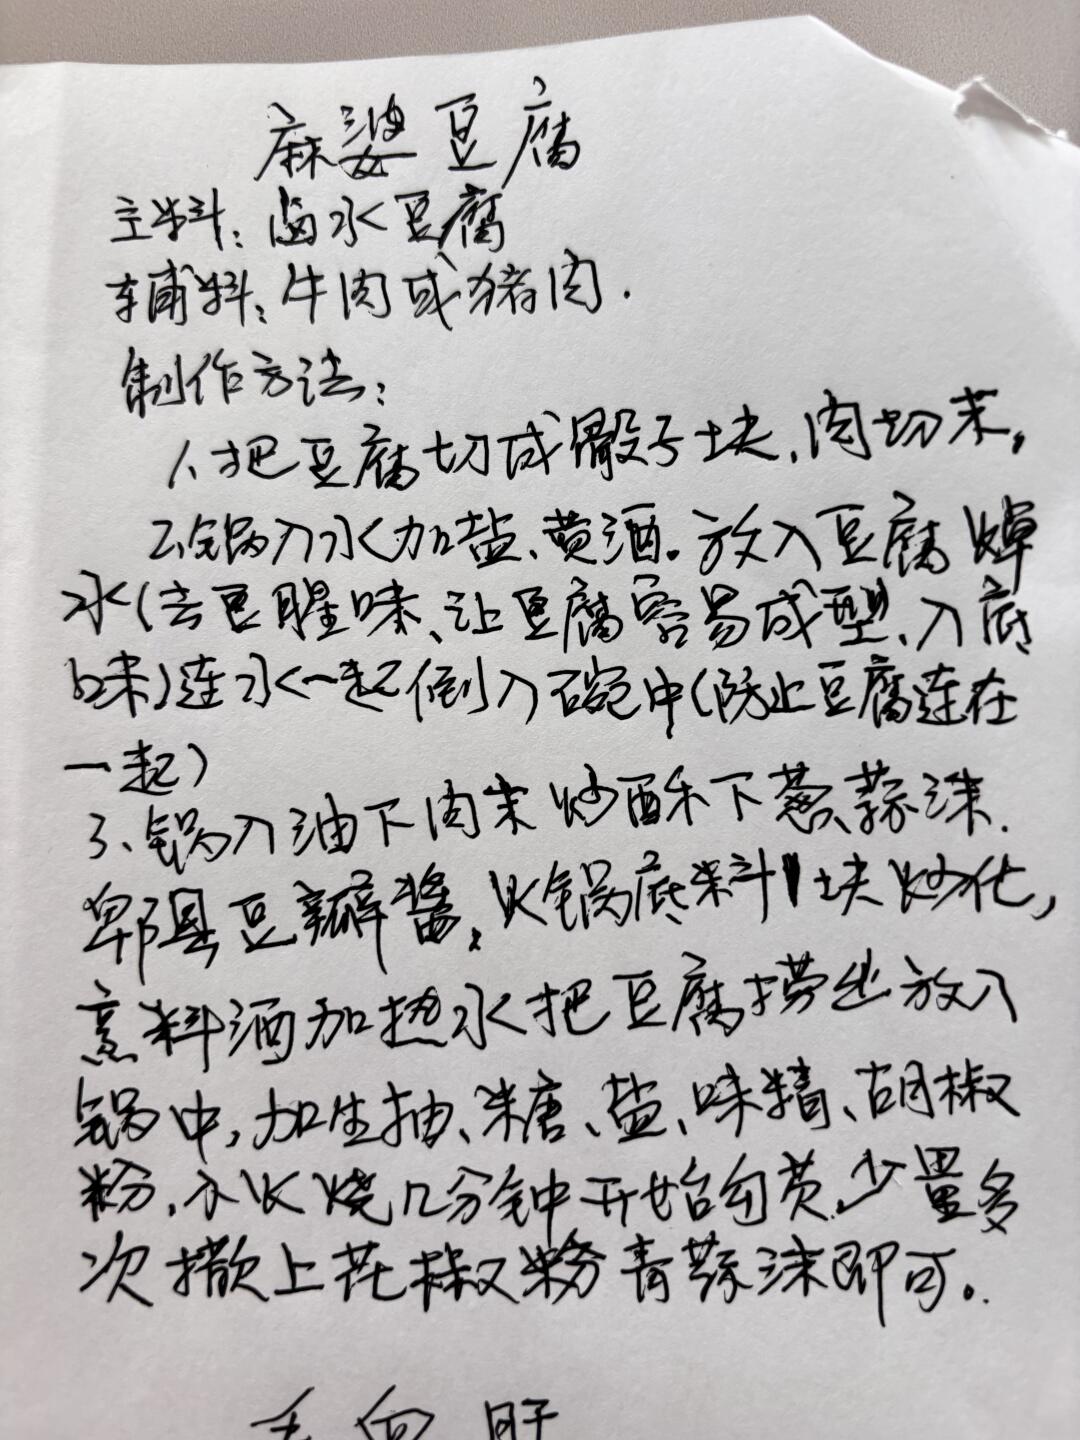 麻婆豆腐
主料:卤水豆腐
辅料:牛肉或猪肉.
制作方法:
1、把豆腐切成骰子块,肉切末,
2、锅入水加盐、黄酒。放入豆腐焯
水(去豆腥味、让豆腐容易成型、入底
味)连水一起倒入碗中(防止豆腐连在
一起)
3、锅入油下肉末炒酥下葱、蒜沫.
郫县豆瓣酱,火锅底料1块炒化,
烹料酒加热水把豆腐捞出放入
锅中,加生抽、糖、盐、味精、胡椒
粉,小火烧几分钟开始勾芡,少量多
次撒上花椒粉青蒜沫即可。